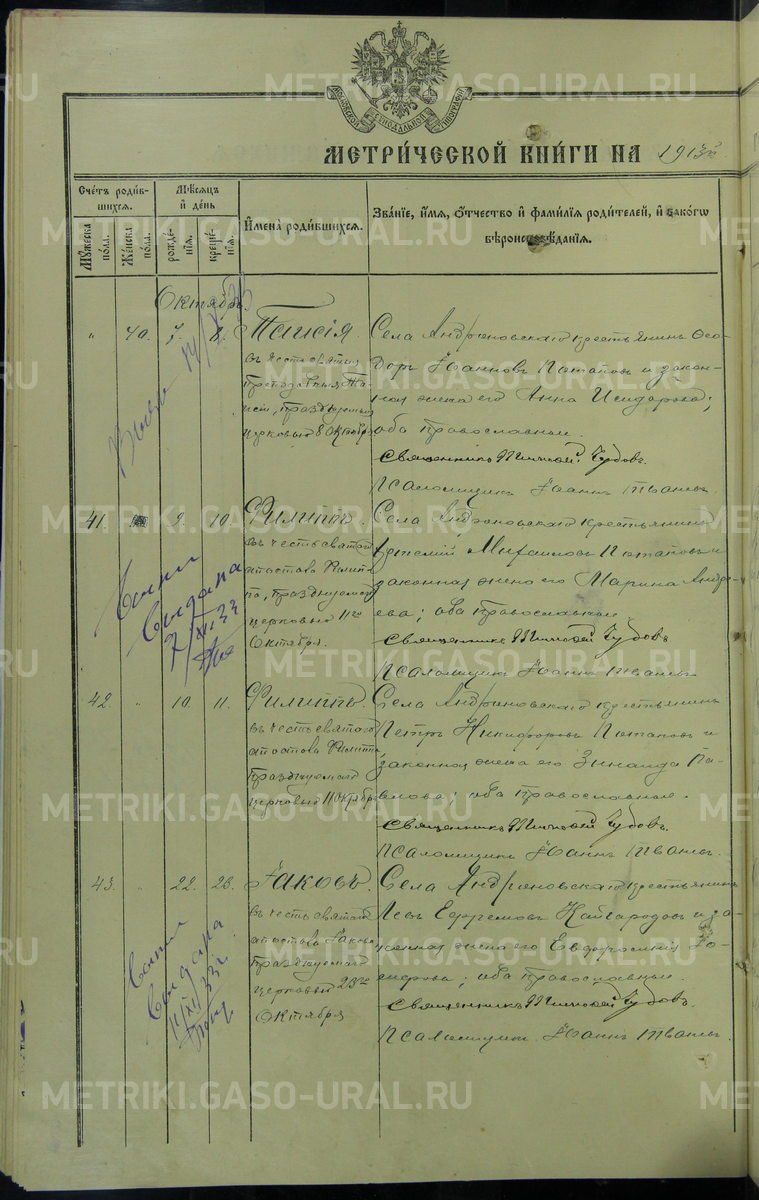 МЕТРИ́ЧЕСКОЙ КНИ́ГИ НА 1913 г.
Сче́тъ роди́вшихся.
Му́жеска пола.
Же́нска пола.
Мѣсяцъ и́ де́нь
рожде́нїя.
креще́нїя.
И҆мена̀ роди́вшихся.
Зва́нїе, и́мя, о́тчество и҆ фами́лїя роди́телей, и҆ како́гω
вѣроисповѣ́данїя.
Октябрь.
" 40 7. 8. Таисія
въ честь святыя
преподобныя Та-
исіи, празднуемыя
церковью 8 Октября
Села Андрюновскаго крестьянинъ Ѳео-
доръ Іоанновъ Потаповъ и закон-
ная жена его Анна Исидорова;
оба православные.
Священникъ Тимоѳей Чудовъ.
Псаломщикъ Іоаннъ
41. 9. 10 Филиппъ.
въ честь святого
апостола Филип-
па, празднуемаго
церковью 11го
Октября.
Села Андрюновскаго крестьянинъ
Артемій Михаиловъ Потаповъ и
законная жена его Марина Андре-
ева; оба православные
Священникъ Тимоѳей Чудовъ
Псаломщикъ Іоаннъ
42. " 10. 11. Филиппъ.
въ честь святого
апостола Филиппа,
празднуемаго
церковью 11 Октября
Села Андрюновскаго крестьянинъ
Петръ Никифоровъ Потаповъ и
законная жена его Зинаида Па-
влова; оба православные.
Священникъ Тимоѳей Чудовъ.
Псаломщикъ Іоаннъ
43. " 22. 26. Іаковъ.
въ честь святого
апостола Іакова
празднуемаго
церковью 23го
Октября
Села Андрюновскаго крестьянинъ
Левъ Ефремовъ Кайгародовъ и за-
конная жена его Евфросинія
оба православные.
Священникъ Тимоѳей Чудовъ.
Псаломщикъ Іоаннъ
7/XII 33
11/XI 33г
METRIKI.GASO-URAL.RU